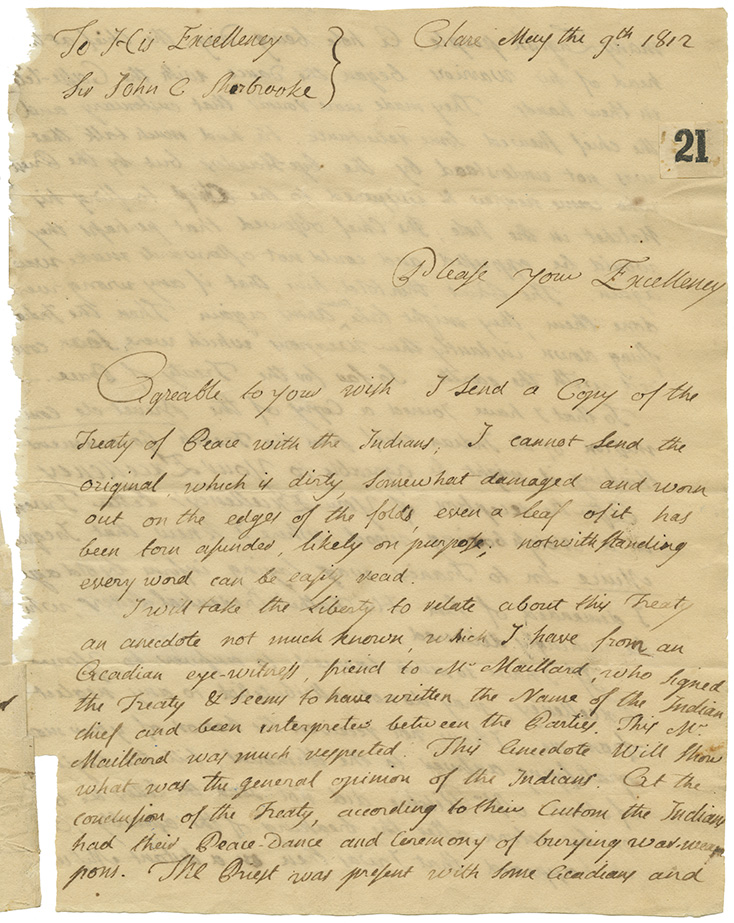 To His Excellency
Sir John C Sherbrooke
Clare May the 9th 1812
21
Please your Excellency
Agreable to your wish I send a Copy of the
Treaty of Peace with the Indians; I cannot send the
original, which is dirty, somewhat damaged and worn
out on the edges of the folds, even a leaf of it has
been torn asunder, likely on purpose; notwithstanding
every word can be easily read.
I will take the Liberty to relate about this Treaty
an anecdote not much known, which I have from an
Acadian eye-witness, friend to Mr Maillard, who signed
the Treaty & seems to have written the Name of the Indian
chief and been interpreter between the Parties. This Mr
Maillard was much respected. This Anecdote Will show
what was the general opinion of the Indians. At the
conclusion of the Treaty, according to their Custom the Indians
had their Peace-Dance and Ceremony of burying war-wea
pons. The Priest was present with some Acadians and